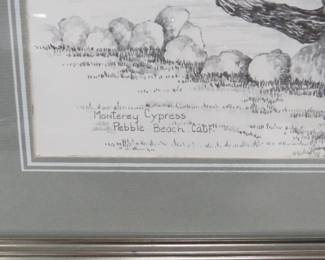 Monterey Cypress
Pebble Beach Calif.